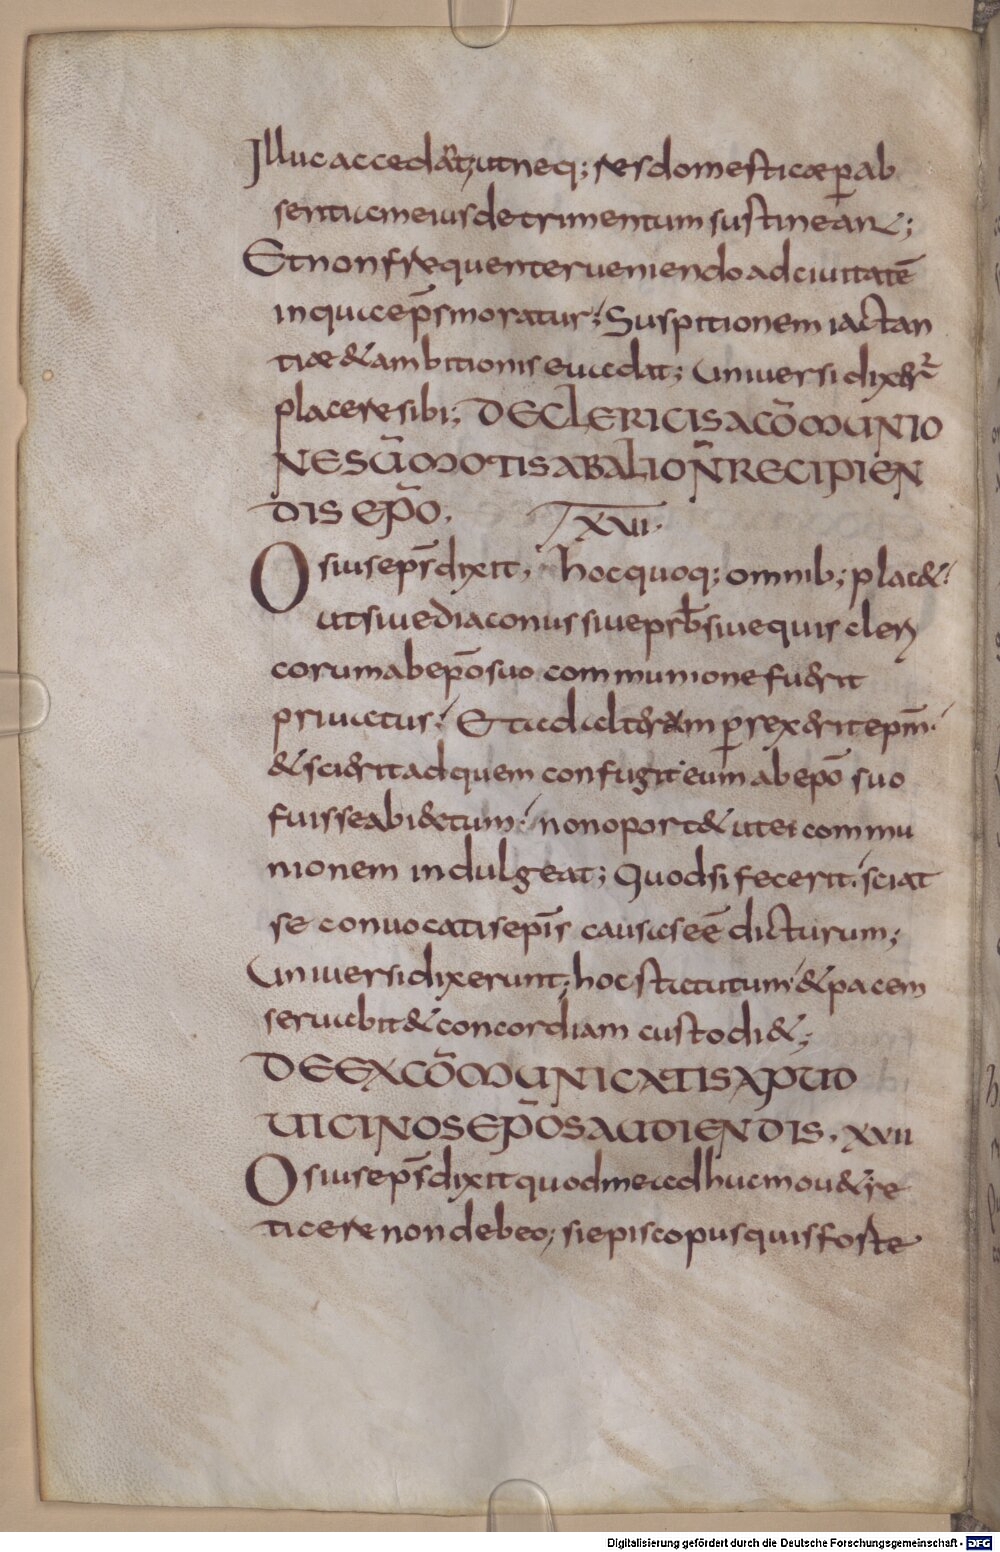 Illuc accedat; ut neq; res domesticæ ꝑ ab
sentiam eius detrimentum sustineant;
Et non frequenter ueniendo ad ciuitatē
in qua ep̄s moratur; Suspitionem iactan
tiæ & ambitionis euadat; Uniuersi dixer̄
placere sibi; DE CLERICIS A CŌMUNIO
NE SŪMOTIS AB ALIO N̄ RECIPIEN
DIS EP̄O. XVI.
Osius ep̄s dixit, hoc quoq; omnib; plac&
ut siue diaconus siue prb̄ siue quis cleri
corum ab ep̄o suo communione fuerit
priuatus. Et ad alterum ꝑrexerit ep̄m.
& scierit ad quem confugit eum ab ep̄o suo
fuisse abiectum. non oport& ut ei commu
nionem indulgeat; Quod si fecerit. sciat
se conuocatis ep̄is causas eē dicturum;
Uniuersi dixerunt; hoc statutum & pacem
seruabit & concordiam custodi&;
DE EXCŌMUNICATIS APUD
UICINOS EP̄OS AUDIENDIS. XVII
Osius ep̄s dixit quod me adhuc mou& re
ticere non debeo; si episcopus quis forte
Digitalisierung gefördert durch die Deutsche Forschungsgemeinschaft - DFG